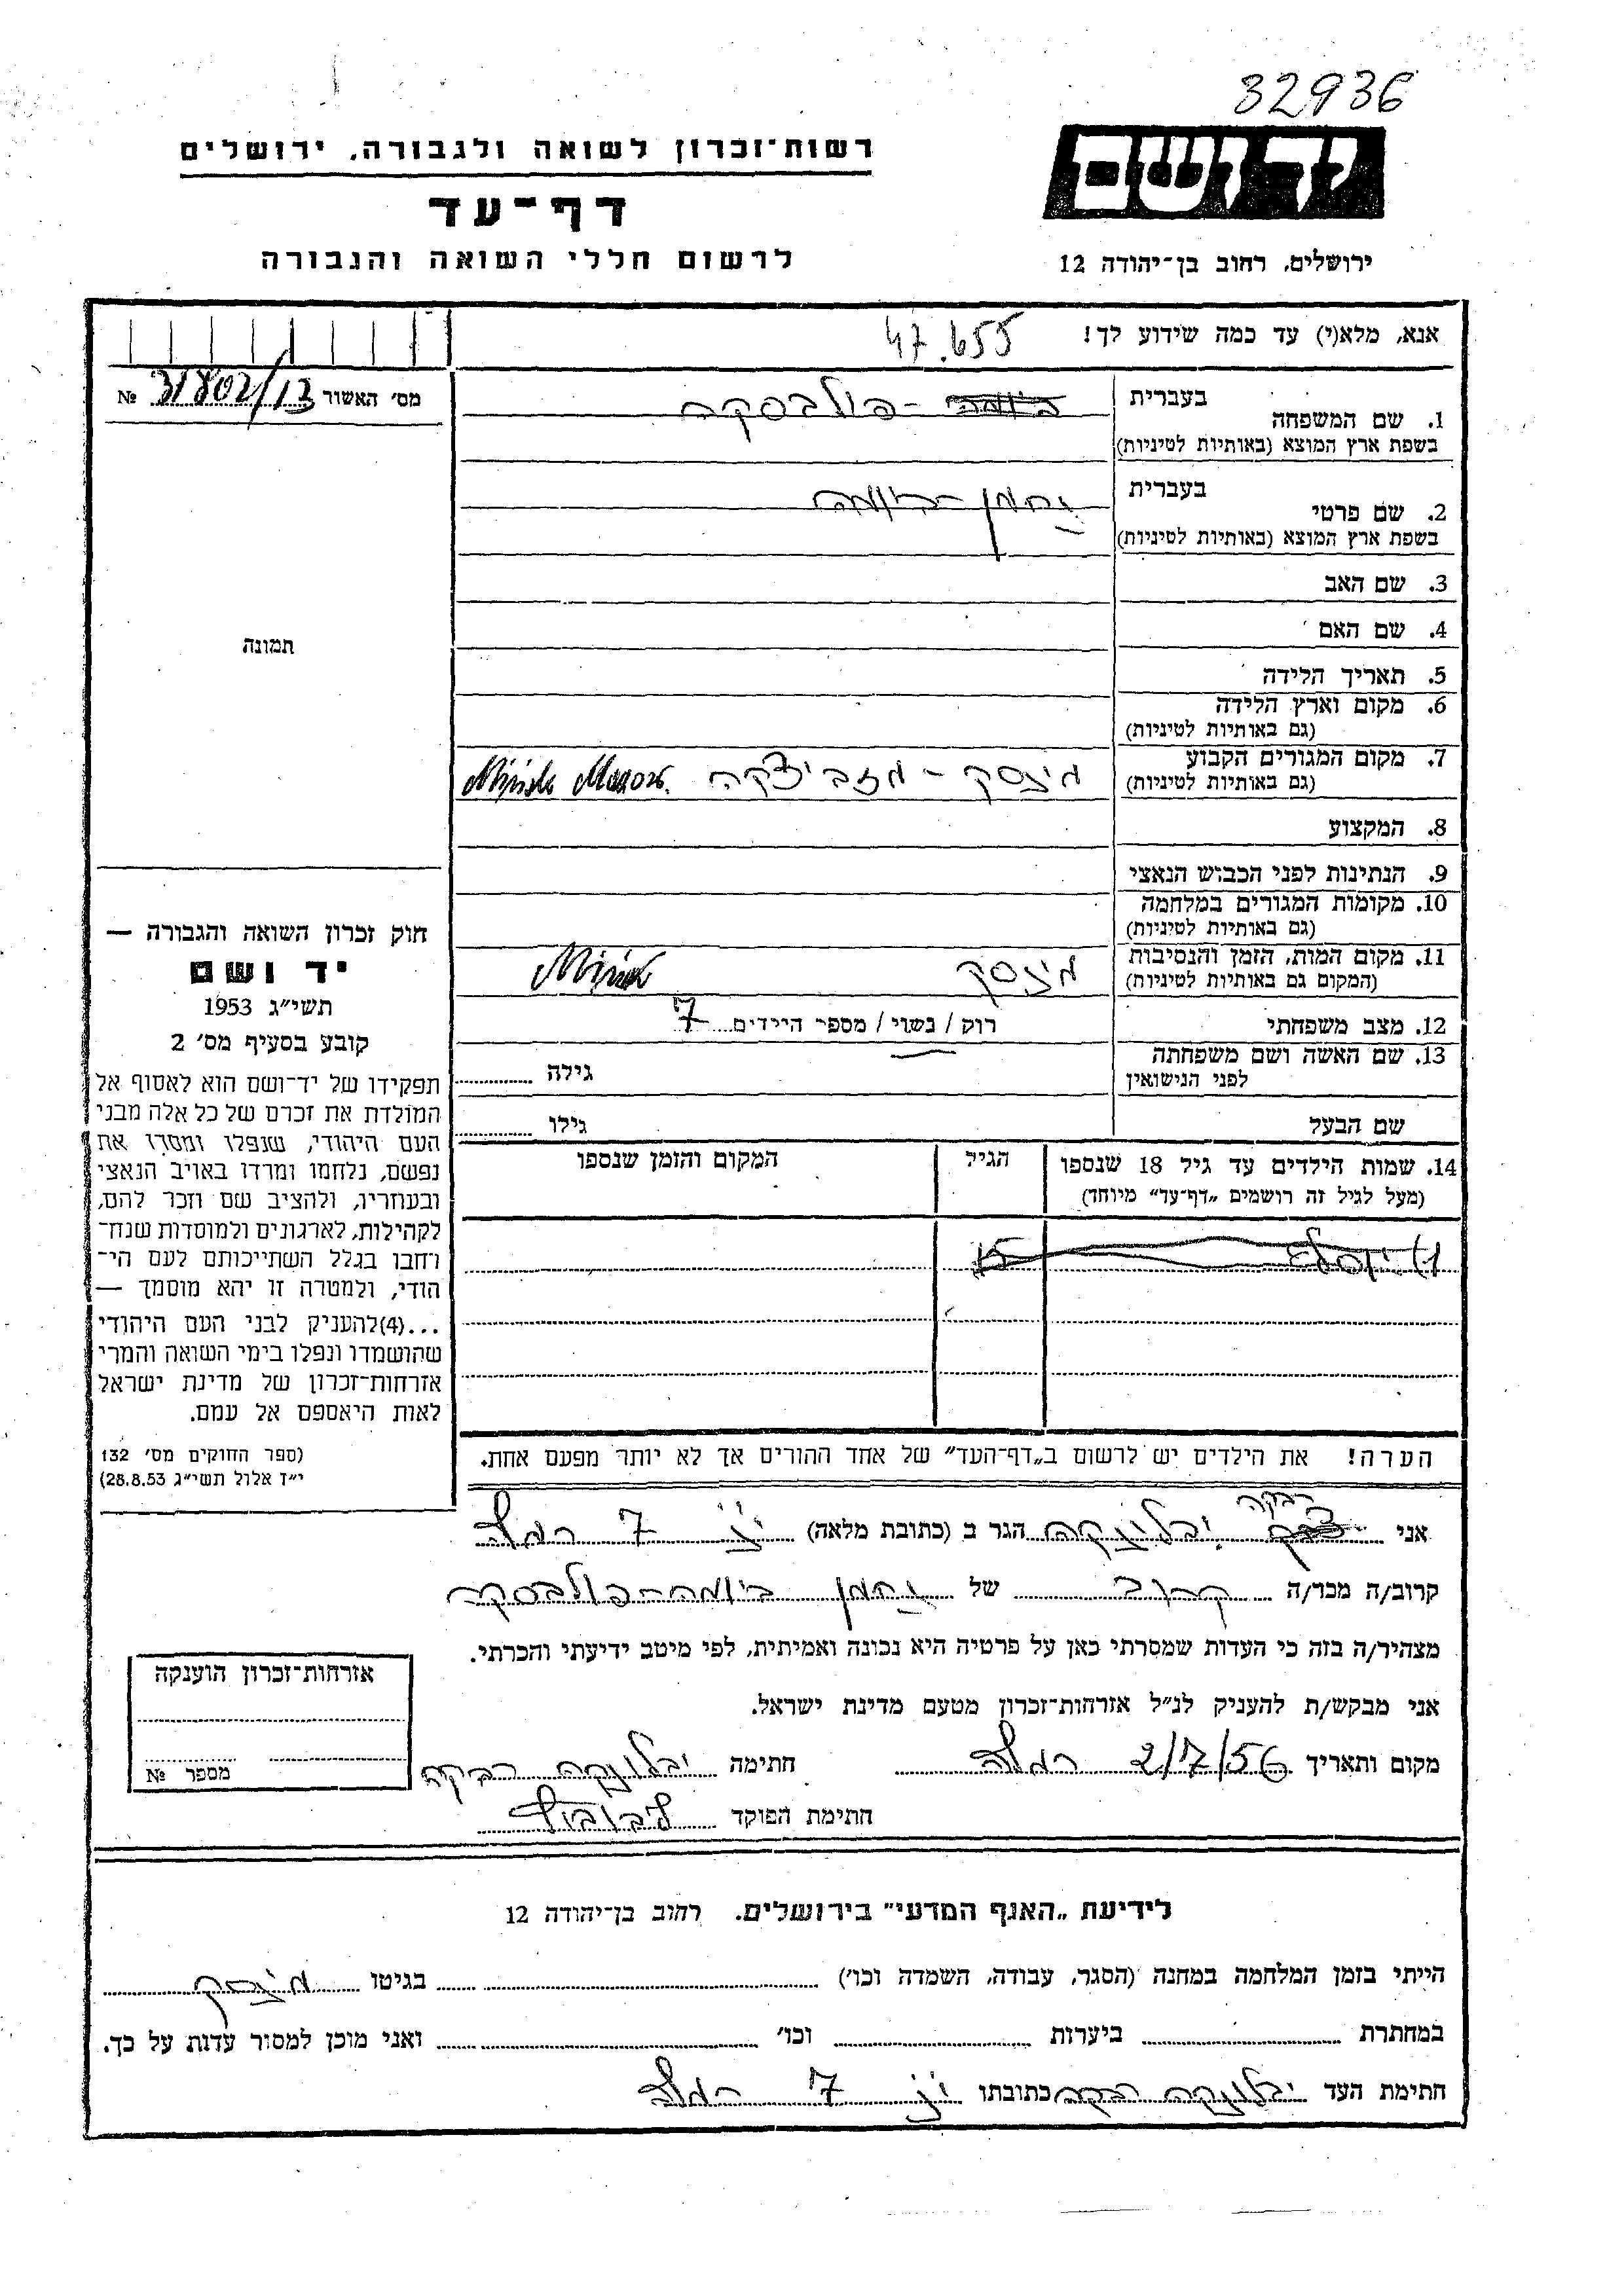 32936
יד ושם
רשות־זכרון לשואה ולגבורה, ירושלים
דף־עד
לרשום חללי השואה והגבורה
ירושלים, רחוב בן־יהודה 12
אנא, מלא(י) עד כמה שידוע לך! 47.655
מס׳ האשור 31802/13 №
בעברית
1. שם המשפחה פולבסקה
בשפת ארץ המוצא (באותיות לטיניות)
בעברית
2. שם פרטי נחמן־בימה
בשפת ארץ המוצא (באותיות לטיניות)
3. שם האב
4. שם האם
5. תאריך הלידה
6. מקום וארץ הלידה
(גם באותיות לטיניות)
7. מקום המגורים הקבוע מינסק - מזביצקה Mińsk Mazow.
(גם באותיות לטיניות)
8. המקצוע
9. הנתינות לפני הכבוש הנאצי
10. מקומות המגורים במלחמה
(גם באותיות לטיניות)
11. מקום המות, הזמן והנסיבות מינסק Mińsk
(המקום גם באותיות לטיניות)
12. מצב משפחתי רוק / נשוי / מספר הילדים 7
13. שם האשה ושם משפחתה גילה
לפני הנישואין
שם הבעל גילו
14. שמות הילדים עד גיל 18 שנספו הגיל המקום והזמן שנספו
(מעל לגיל זה רושמים „דף־עד” מיוחד)
הערה! את הילדים יש לרשום ב„דף־העד” של אחד ההורים אך לא יותר מפעם אחת.
תמונה
חוק זכרון השואה והגבורה —
יד ושם
תשי״ג 1953
קובע בסעיף מס׳ 2
תפקידו של יד־ושם הוא לאסוף אל
המולדת את זכרם של כל אלה מבני
העם היהודי, שנפלו ומסרו את
נפשם, נלחמו ומרדו באויב הנאצי
ובעוזריו, ולהציב שם וזכר להם,
לקהילות, לארגונים ולמוסדות שנח־
רחבו בגלל השתייכותם לעם הי־
הודי, ולמטרה זו יהא מוסמך —
...(4)להעניק לבני העם היהודי
שהושמדו ונפלו בימי השואה והמרי
אזרחות־זכרון של מדינת ישראל
לאות היאספם אל עמם.
(ספר החוקים מס׳ 132
י״ז אלול תשי״ג 28.8.53)
רבקה
אני יבלונקה הגר ב (כתובת מלאה) 7 רמלה
קרוב/ה מכר/ה קרוב של נחמן בימה־פולבסקה
מצהיר/ה בזה כי העדות שמסרתי כאן על פרטיה היא נכונה ואמיתית, לפי מיטב ידיעתי והכרתי.
אני מבקש/ת להעניק לנ״ל אזרחות־זכרון מטעם מדינת ישראל.
מקום ותאריך 2/7/56 רמלה חתימה יבלונקה רבקה
חתימת הפוקד
אזרחות־זכרון הוענקה
מספר №
לידיעת „האגף המדעי” בירושלים. רחוב בן־יהודה 12
הייתי בזמן המלחמה במחנה (הסגר, עבודה, השמדה וכו׳) בגיטו מינסק
במחתרת ביערות וכו׳ ואני מוכן למסור עדות על כך.
חתימת העד יבלונקה רבקה כתובתו 7 רמלה